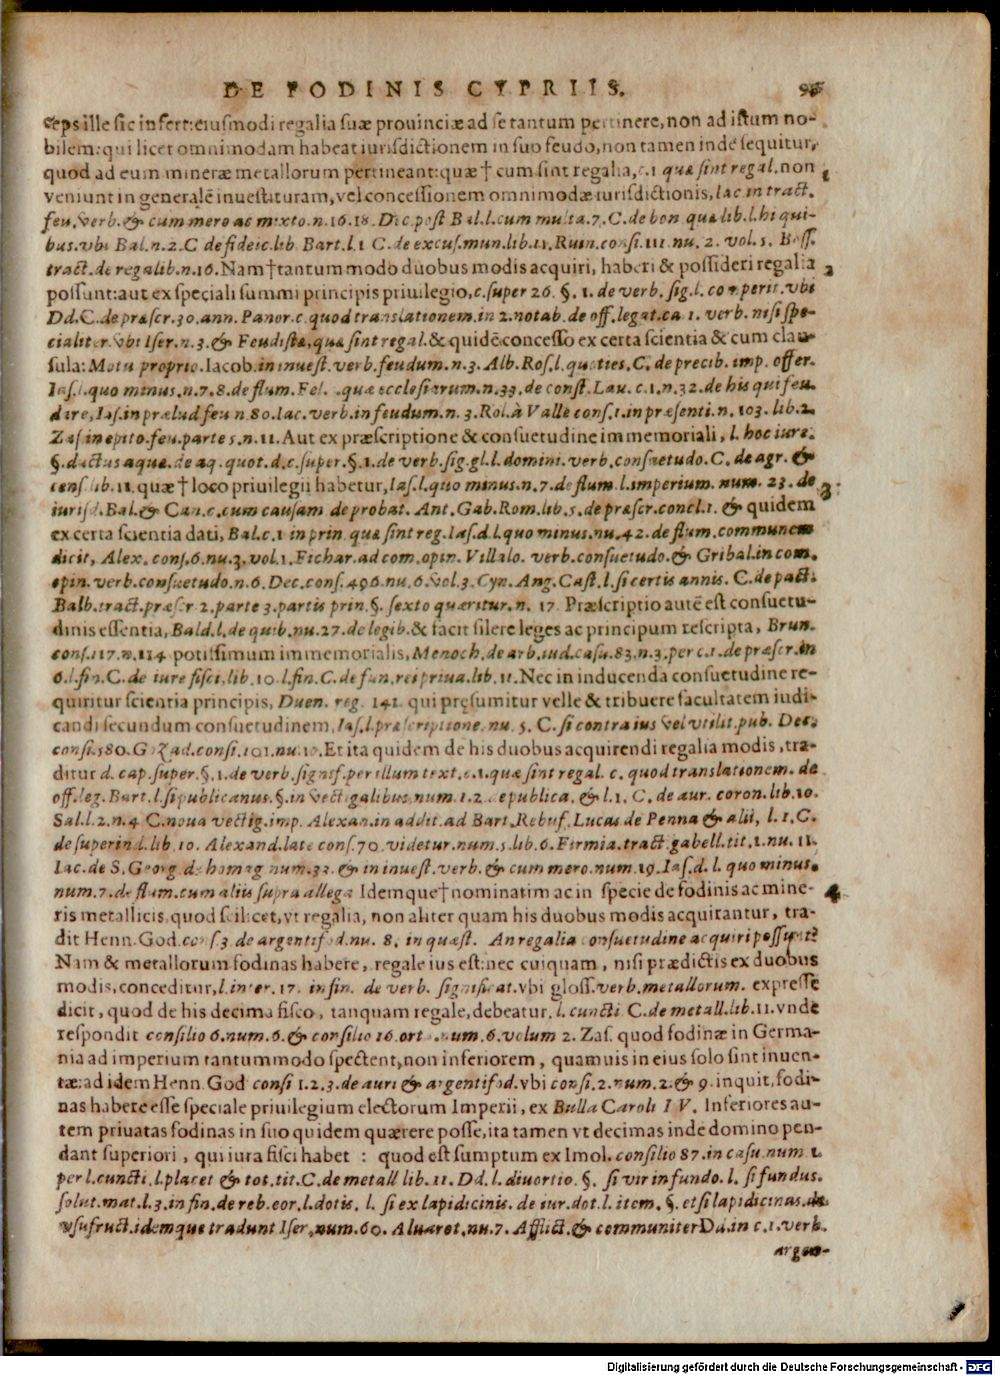 DE FODINIS CYPRIIS.
ceps ille sic infert: eiusmodi regalia suæ prouinciæ ad se tantum pertinere, non ad istum no-
bilem: qui licet omnimodam habeat iurisdictionem in suo feudo, non tamen inde sequitur,
quod ad eum mineræ metallorum pertineant: quæ † cum sint regalia, c. 1 quæ sint regal. non
veniunt in generalē inuestituram, vel concessionem omnimodæ iurisdictionis, Iac in tract.
feu. verb. & cum mero ac mixto. n. 16. 18. Dec. post Bal. l. cum multa. 7. C. de bon quæ lib. l. hi qui-
bus. vbi Bal. n. 2. C de fideic. lib Bart. l. 1 C. de excus. mun. lib. 11. Ruin. consi. 111 nu. 2. vol. 5. Boss.
tract. de regalib. n. 16. Nam † tantummodo duobus modis acquiri, haberi & possideri regalia 2
possunt: aut ex speciali summi principis priuilegio, c. super 26. §. 1. de verb. sig. l. comperit. vbi
Dd. C. de præscr. 30. ann. Panor. c. quod translationem. in 2. notab. de off. legat. ca 1. verb. nisi spe-
cialiter. vbi Iser. n. 3. & Feudistæ, quæ sint regal. & quidē concesso ex certa scientia & cum clau-
sula: Motu proprio. Iacob. in inuest. verb. feudum. n. 3. Alb. Ros. l. quoties, C. de precib. imp. offer.
Ias. l. quo minus. n. 7. 8. de flum. Fel. . quæ ecclesiarum. n. 33. de const. Lau. c. 1. n. 32. de his qui feu.
dare, Ias. in prælud feu n. 80. Iac. verb. in feudum. n. 3. Rol. à Valle cons. 1. in præsenti. n. 103. lib. 2.
Zas in epito. feu. parte 5. n. 11. Aut ex præscriptione & consuetudine immemoriali, l. hoc iure.
§. ductus aquæ. de aq. quot. d. c. super. §. 1. de verb. sig. gl. l. domini. verb. consuetudo. C. de agr. &
cens lib. 11. quæ † loco priuilegii habetur, Ias. l. quo minus. n. 7. de flum. l. imperium. num. 23. de 3.
iurisd. Bal. & Can. c. cum causam de probat. Ant. Gab. Rom. lib. 5. de præscr. concl. 1. & quidem
ex certa scientia dati, Bal. c. 1 in prin. quæ sint reg. Ias. d. l. quo minus. nu. 42. de flum. communem
dicit, Alex. cons. 6. nu. 3. vol. 1. Fichar. ad com. opin. Villalo. verb. consuetudo. & Gribal. in com.
opin. verb. consuetudo. n. 6. Dec. cons. 496. nu. 6. vol. 3. Cyn. Ang. Cast. l. si certis annis. C. de pact.
Balb. tract. præscr 2. parte 3. partis prin. §. sexto quæritur. n. 17. Præscriptio autē est consuetu-
dinis essentia, Bald. l. de quib. nu. 27. de legib. & facit silere leges ac principum rescripta, Brun.
cons. 117. n. 114 potissimum immemorialis, Menoch. de arb. iud. casu. 83. n. 3. per c. 1. de præscr. in
6. l. fin. C. de iure fisci. lib. 10. l. fin. C. de fun. rei priua. lib. 11. Nec in inducenda consuetudine re-
quiritur scientia principis, Duen. reg. 141. qui pręsumitur velle & tribuere facultatem iudi-
candi secundum consuetudinem, Ias. l. præscriptione. nu. 5. C. si contra ius vel vtilit. pub. Dec.
consi. 580. Goz ad. consi. 101. nu. 10. Et ita quidem de his duobus acquirendi regalia modis, tra-
ditur d. cap. super. §. 1. de verb. signif. per illum text. c. 1. quæ sint regal. c. quod translationem. de
off. leg. Bart. l. si publicanus. §. in vectigalibus. num. 1. 2. de publica. & l. 1. C. de aur. coron. lib. 10.
Sal. l. 2. n. 4 C. noua vectig. imp. Alexan. in addit. ad Bart. Rebuf. Lucas de Penna & alii, l. 1. C.
de superind. lib. 10. Alexand. late cons. 70. videtur. num. 5. lib. 6. Firmia. tract. gabell. tit. 1. nu. 11.
Iac. de S. Georg. de homag num. 32. & in inuest. verb. & cum mero. num. 19. Ias. d. l. quo minus.
num. 7. de flum. cum aliis supra allega Idemque † nominatim ac in specie de fodinis ac mine- 4
ris metallicis quod scilicet, vt regalia, non aliter quam his duobus modis acquirantur, tra-
dit Henn. God. cons. 3. de argentifod. nu. 8. in quæst. An regalia consuetudine acquiri possint?
Nam & metallorum fodinas habere, regale ius est: nec cuiquam, nisi prædictis ex duobus
modis, conceditur, l. inter. 17. in fin. de verb. significat. vbi gloss. verb. metallorum. expresse
dicit, quod de his decima fisco, tanquam regale, debeatur. l. cuncti C. de metall. lib. 11. vnde
respondit consilio 6. num. 6. & consilio 16. num. 6. volum 2. Zas. quod fodinæ in Germa-
nia ad imperium tantummodo spectent, non inferiorem, quamuis in eius solo sint inuen-
tæ: ad idem Henn. God consi 1. 2. 3. de auri & argentifod. vbi consi. 2. num. 2. & 9. inquit, fodi-
nas habere esse speciale priuilegium electorum Imperii, ex Bulla Caroli IV. Inferiores au-
tem priuatas fodinas in suo quidem quærere posse, ita tamen vt decimas inde domino pen-
dant superiori, qui iura fisci habet : quod est sumptum ex Imol. consilio 87. in casu. num 1.
per l. cuncti, l. placet & tot. tit. C. de metall lib. 11. Dd. l. diuortio. §. si vir in fundo. l. si fundus.
solut. mat. l. 3. in fin. de reb. eor. l. dotis. l. si ex lapidicinis. de iur. dot. l. item. §. et si lapidicinas. de
vsufruct. idemque tradunt Iser. num. 60. Aluarot. nu. 7. Afflict. & communiter Dd. in c. 1. verb.
argen-
Digitalisierung gefördert durch die Deutsche Forschungsgemeinschaft - DFG